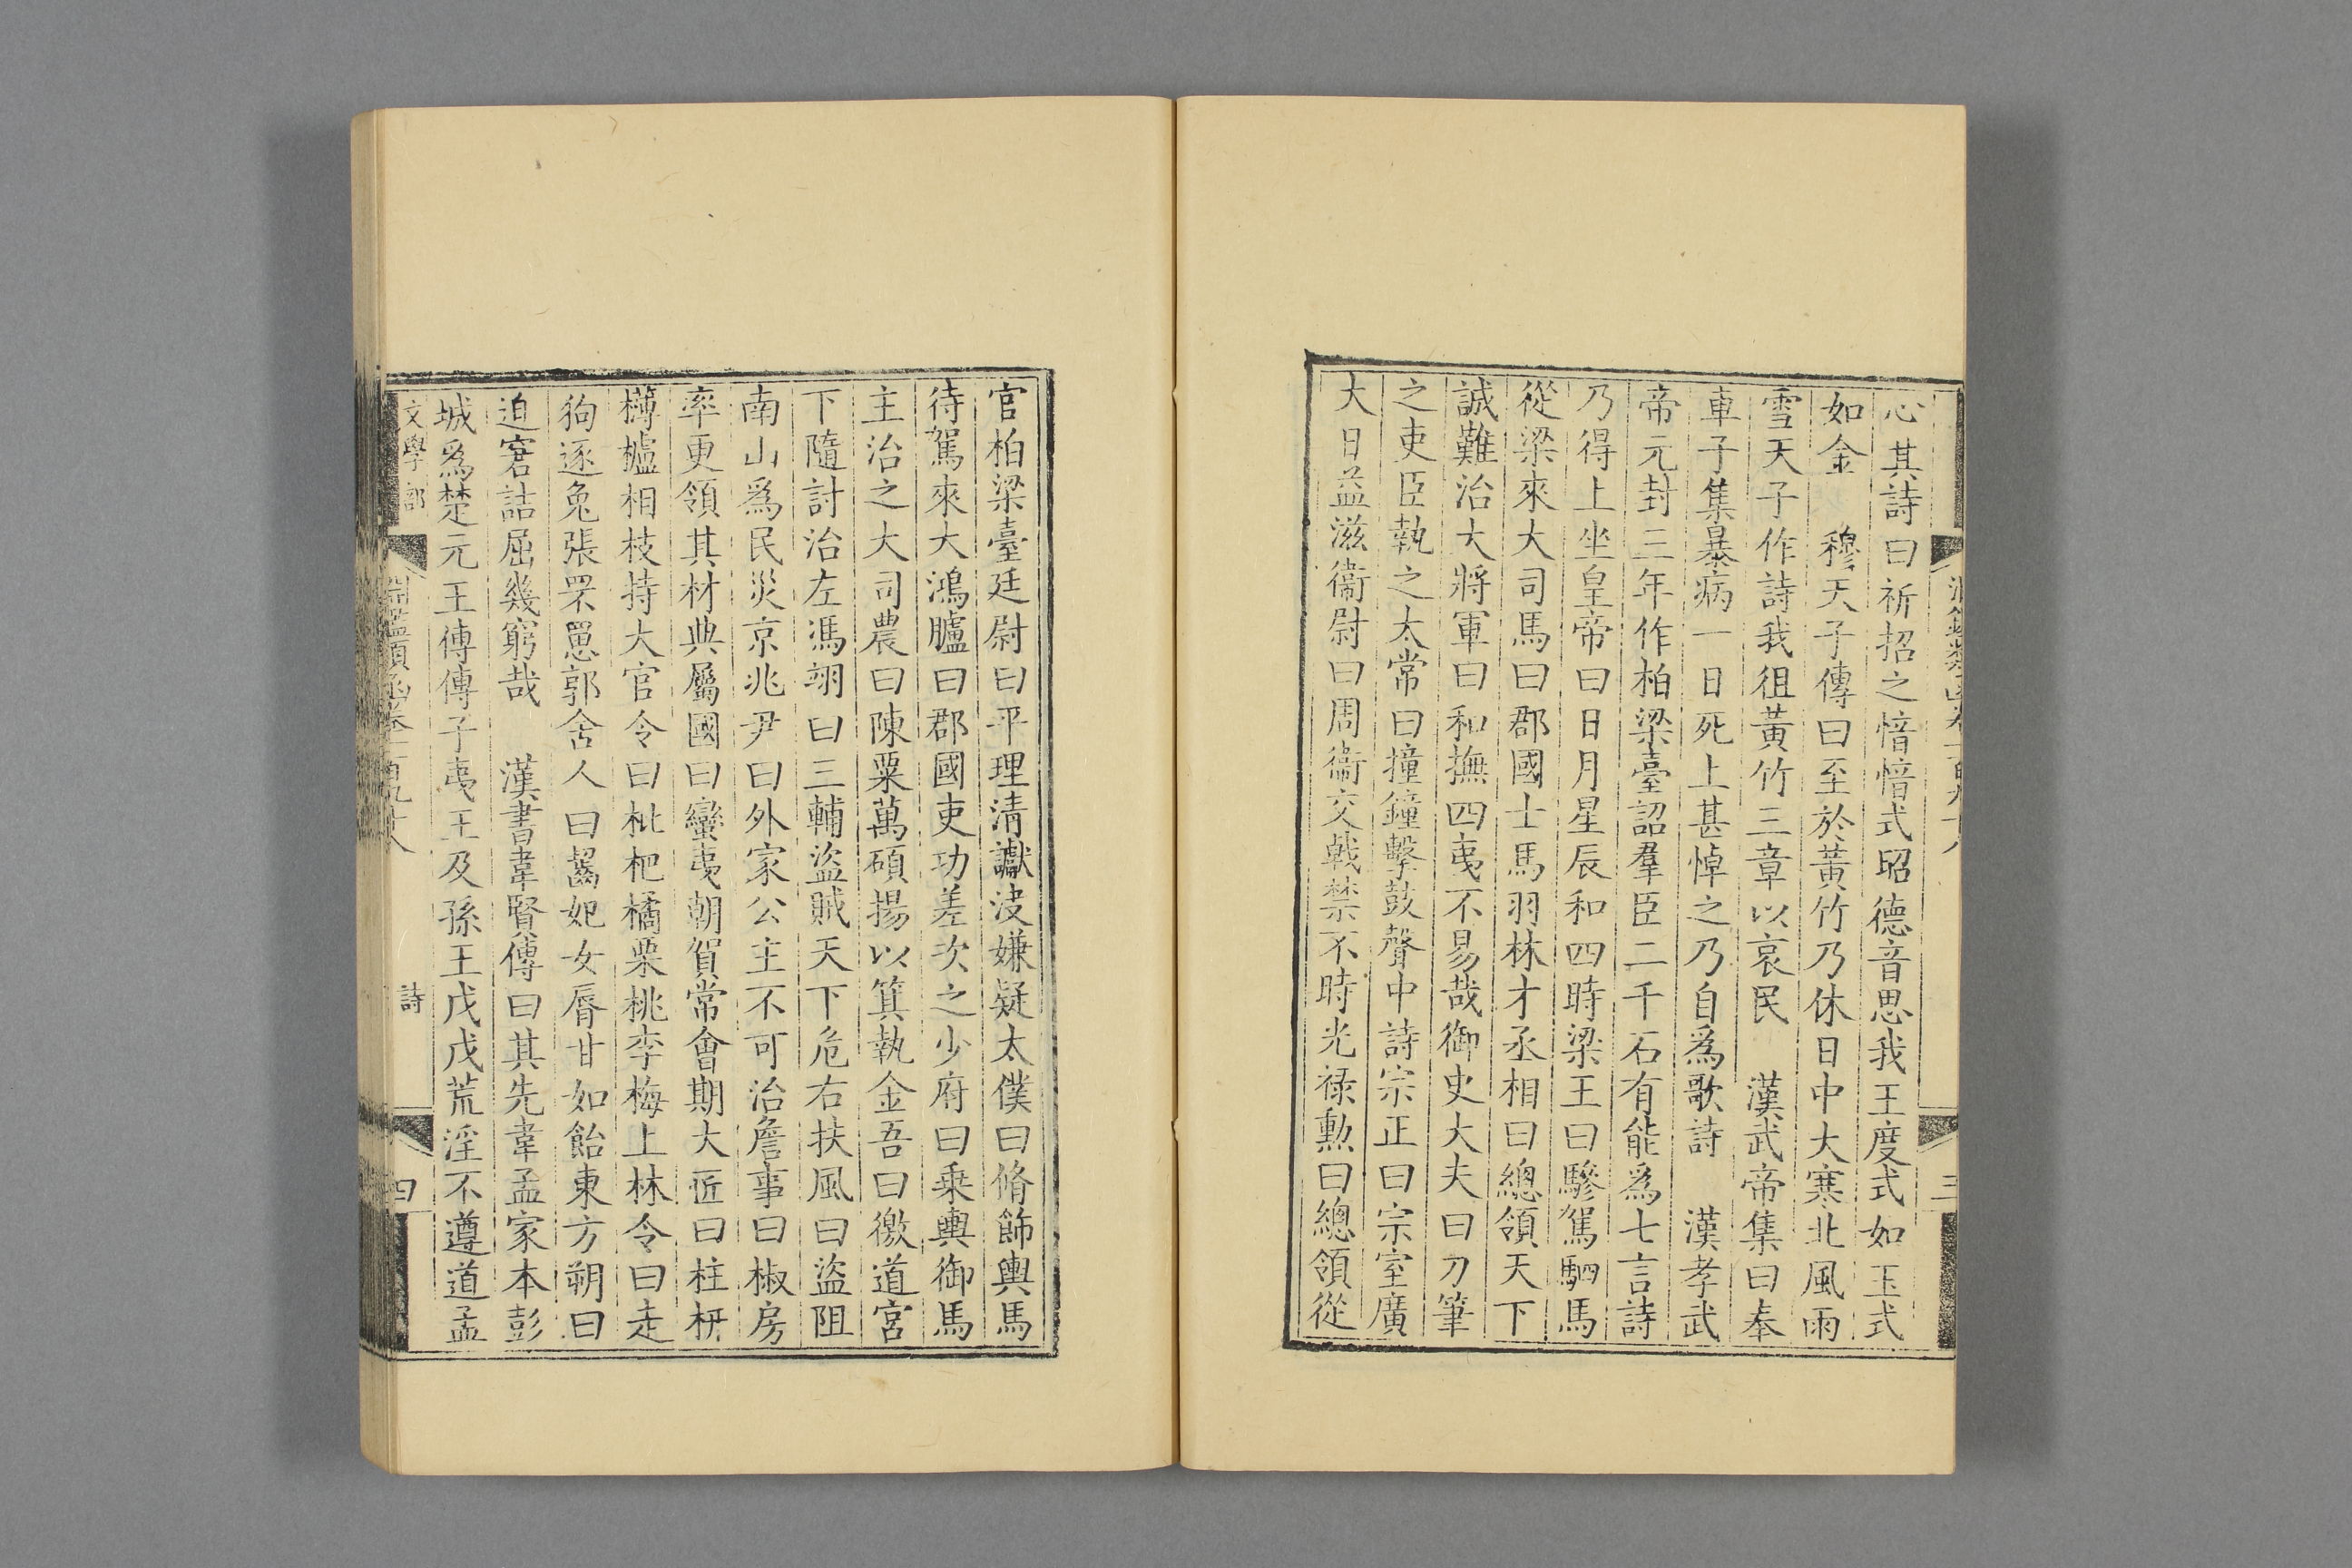 心其詩曰祈招之愔愔式昭德音思我王度式如玉式
如金　穆天子傳曰至於黃竹乃休日中大寒北風雨
雪天子作詩我徂黃竹三章以哀民　漢武帝集曰奉
車子集暴病一日死上甚悼之乃自爲歌詩　漢孝武
帝元封三年作柏梁臺詔羣臣二千石有能爲七言詩
乃得上坐皇帝曰日月星辰和四時梁王曰驂駕駟馬
從梁來大司馬曰郡國士馬羽林才丞相曰總領天下
誠難治大將軍曰和撫四夷不易哉御史大夫曰刀筆
之吏臣執之太常曰撞鐘擊鼓聲中詩宗正曰宗室廣
大日益滋衞尉曰周衞交戟禁不時光祿勲曰總領從
官柏梁臺廷尉曰平理清讞決嫌疑太僕曰脩飾輿馬
待駕來大鴻臚曰郡國吏功差次之少府曰乗輿御馬
主治之大司農曰陳粟萬碩揚以箕執金吾曰徼道宮
下隨討治左馮翊曰三輔盜賊天下危右扶風曰盜阻
南山爲民災京兆尹曰外家公主不可治詹事曰椒房
率更領其材典屬國曰蠻夷朝賀常會期大匠曰柱枅
欂櫨相枝持大官令曰枇杷橘栗桃李梅上林令曰走
狗逐兔張罘罳郭舍人曰齧妃女脣甘如飴東方朔曰
迫窘詰屈幾窮哉　漢書韋賢傳曰其先韋孟家本彭
城爲楚元王傳傳子夷王及孫王戊戊荒淫不遵道孟
文學部　淵鑑類函卷一百九十八　詩　四